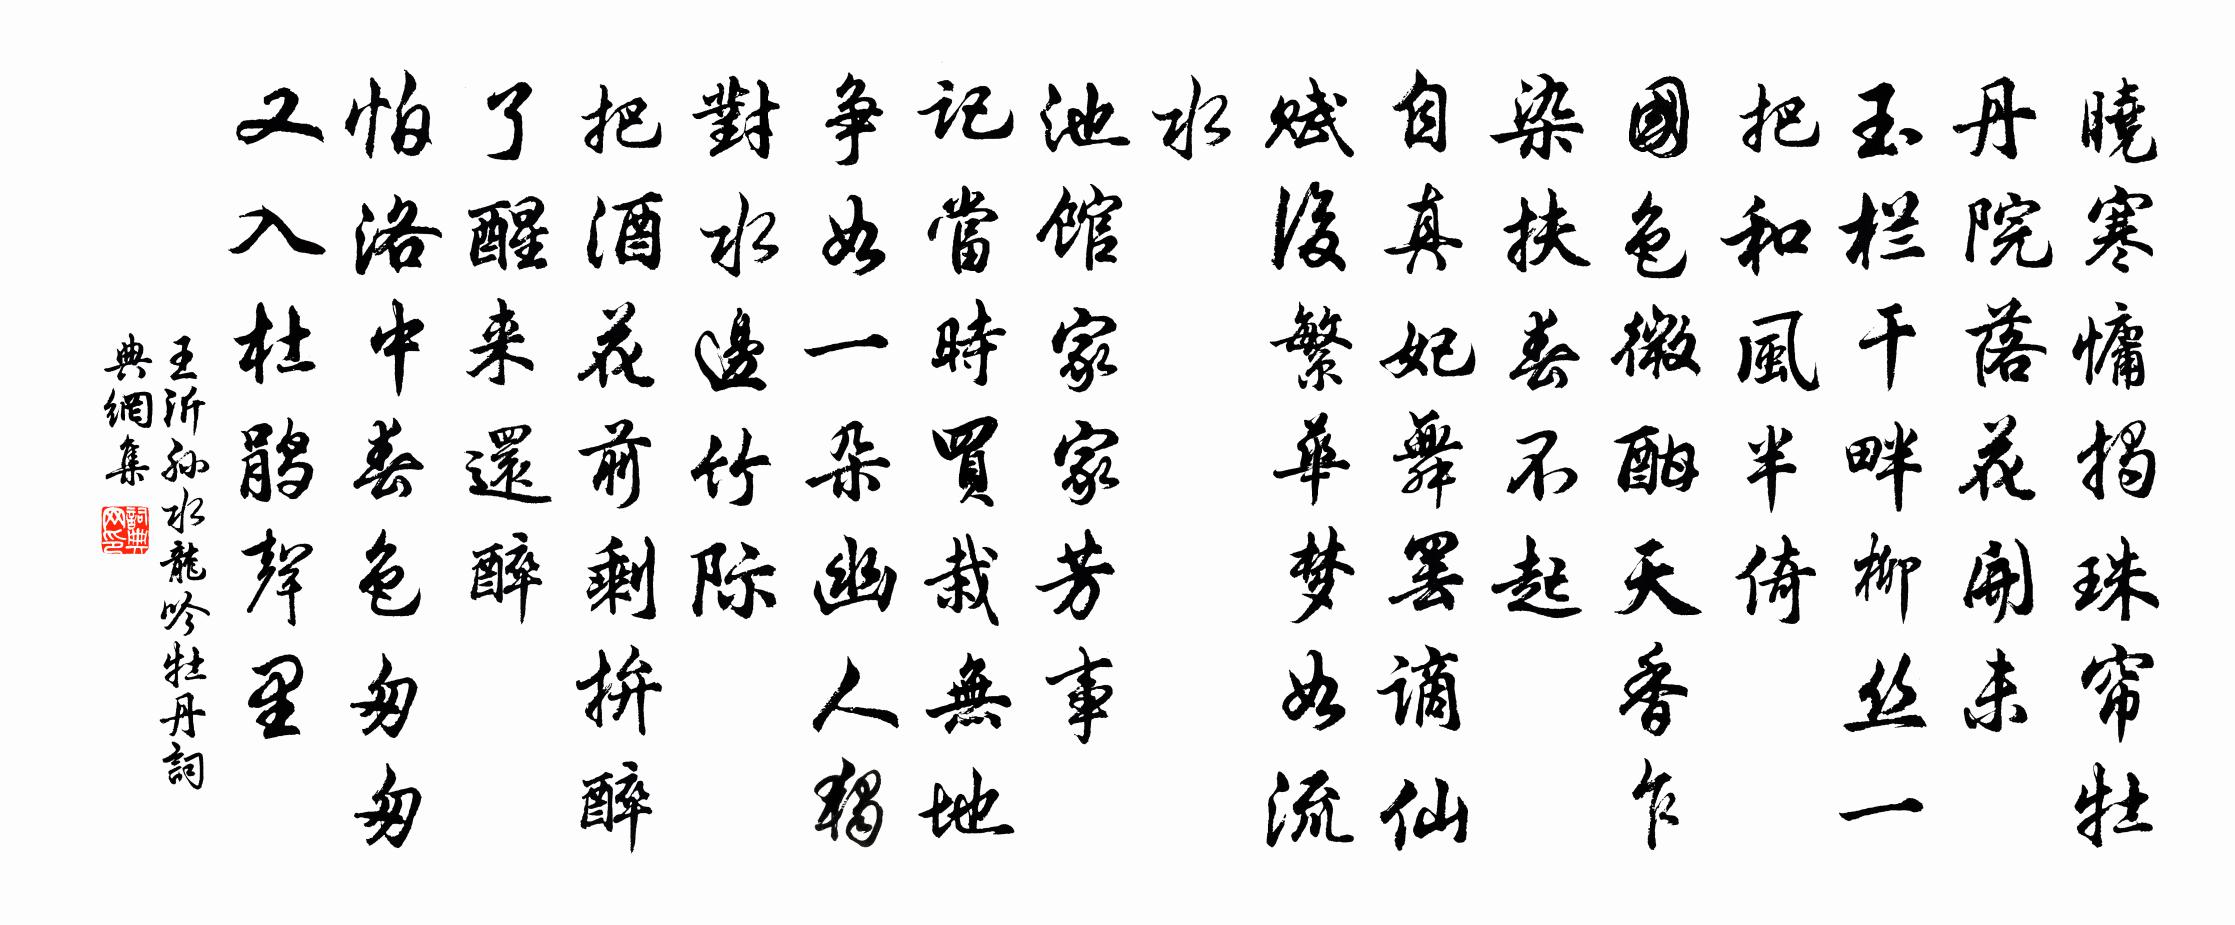 曉寒慵揭珠帘牡
丹院落花開未
玉栏干畔柳丝一
把和風半倚
國色微酣天香乍
染扶春不起
自真妃舞罢谪仙
赋後繁華梦如流
水
池馆家家芳事
記當時買栽無地
争如一朵幽人獨
對水邊竹际
把酒花前剩拚醉
了醒来還醉
怕洛中春色匆匆
又入杜鹃聲里
王沂孙水龍吟牡丹詞
典網集
詞典网印